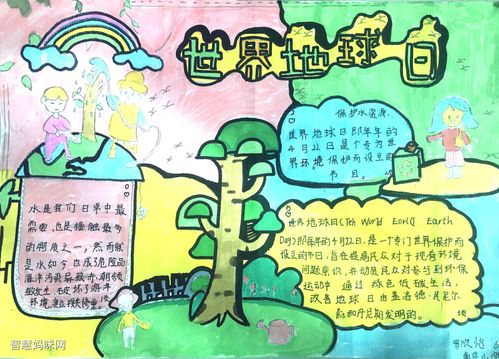 世界地球日
保护水资源
世界地球日即每年的
4月22日是个专为世
界环境保护而设立的
节日。
水是我们日常中最
需要，也是接触最多
的物质之一，然而就
是水如今也成危险品
海洋污染
破坏了海洋
环境
世界地球日(The World Earth
Day)即每年的4月22日，是一个专门世界保护而
设立的节日，旨在提高民众对于现有环境
问题意识，并动员民众对参与到环保
运动中 通过 绿色低碳生活，
改善地球 日由盖洛德·尼尔
智慧妈咪网